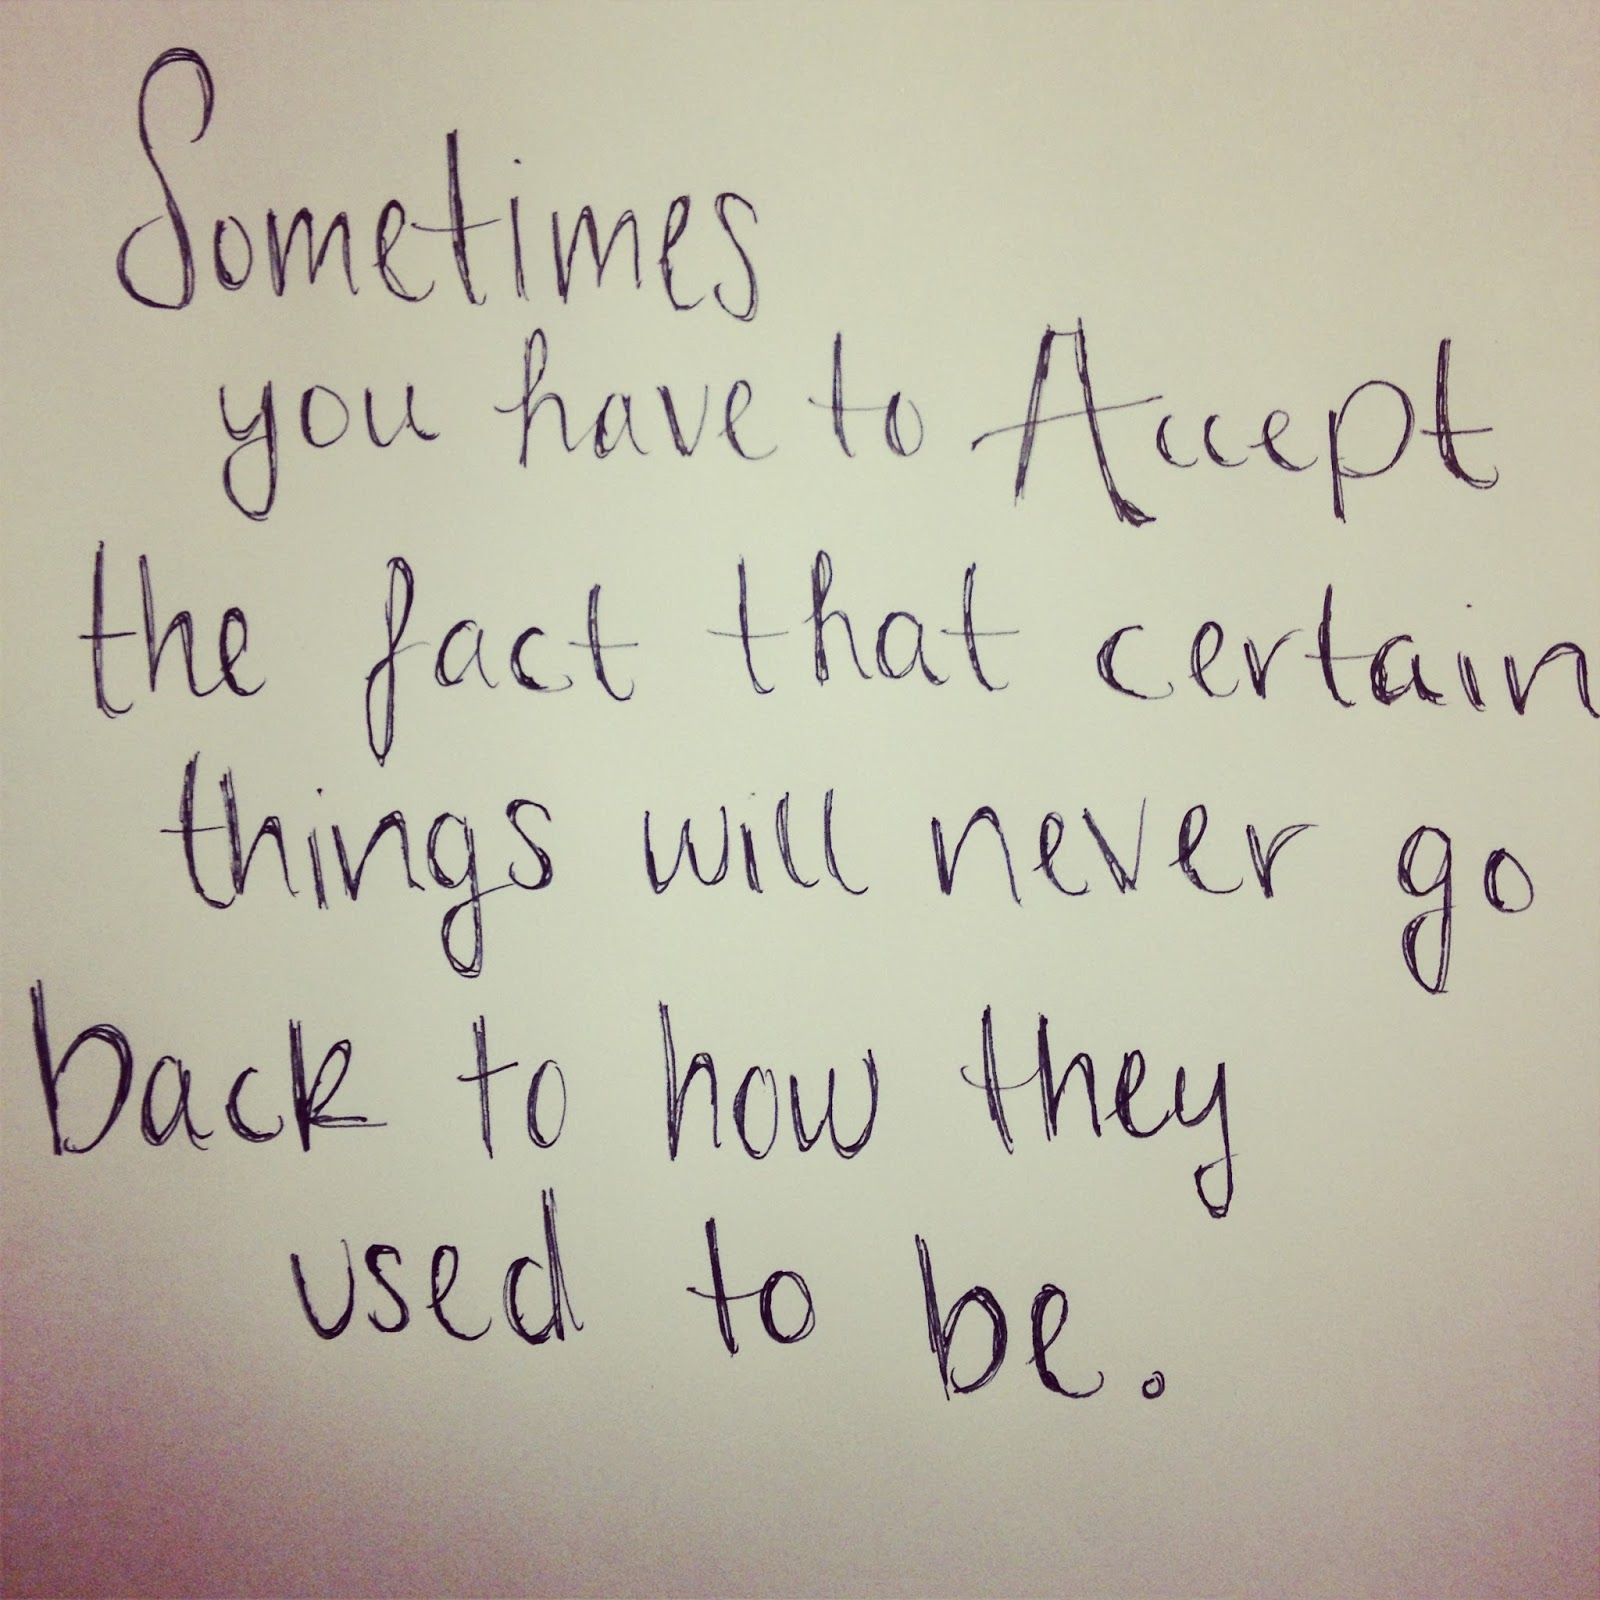 Sometimes
you have to Accept
the fact that certain
things will never go
back to how they
used to be.